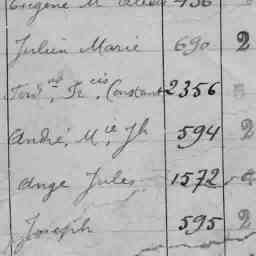 Eugène M
Julien Marie 690 2
Ferd nd, Fr cis, Constant 2356
André, M ie, Jh 594 2
Ange Jules 1572
Joseph 595 2